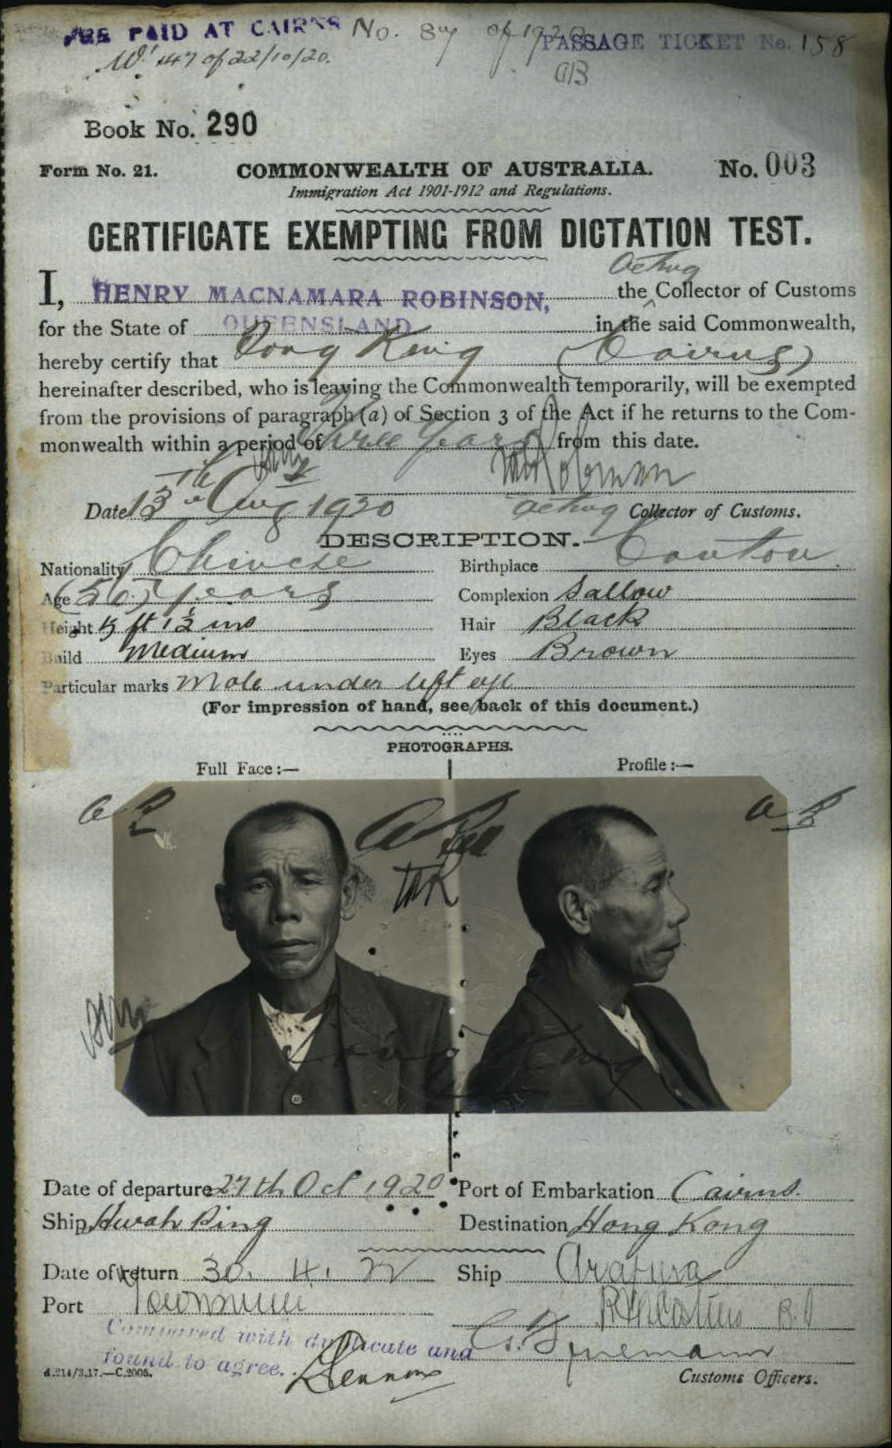 FEE PAID AT CAIRNS No. 87 of 1920 PASSAGE TICKET No. 158
47 of 22/10/20.
Book No. 290
Form No. 21. COMMONWEALTH OF AUSTRALIA. No. 003
Immigration Act 1901-1912 and Regulations.
CERTIFICATE EXEMPTING FROM DICTATION TEST.
Acting
I, HENRY MACNAMARA ROBINSON, the Collector of Customs
for the State of QUEENSLAND in the said Commonwealth,
hereby certify that King (Cairns)
hereinafter described, who is leaving the Commonwealth temporarily, will be exempted
from the provisions of paragraph (a) of Section 3 of the Act if he returns to the Com-
monwealth within a period of Three Years from this date.
Date 13th Aug 1920 Acting Collector of Customs.
DESCRIPTION.
Nationality Chinese Birthplace Canton
Age (50) years Complexion Sallow
Height 5 ft 1½ ins Hair Black
Build Medium Eyes Brown
Particular marks Mole under left eye
(For impression of hand, see back of this document.)
PHOTOGRAPHS.
Full Face:— Profile:—
Date of departure 27th Oct 1920 Port of Embarkation Cairns.
Ship Hwah Ping Destination Hong Kong
Date of return 30. 4. 22 Ship Arafura
Port Townsville
Compared with duplicate and
found to agree.
d.214/3.17.—C.2005. Customs Officers.